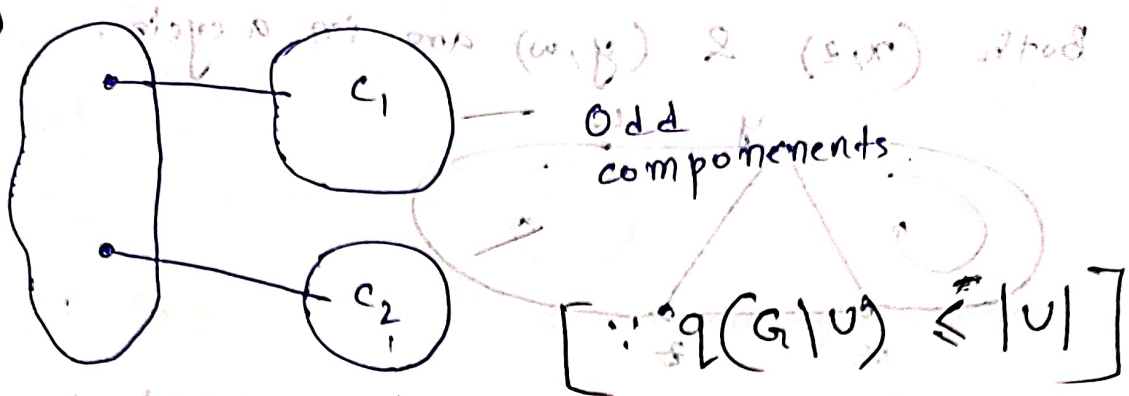 C1
Odd
componenents
C2
[∵ q(G\U) ≤ |U|]